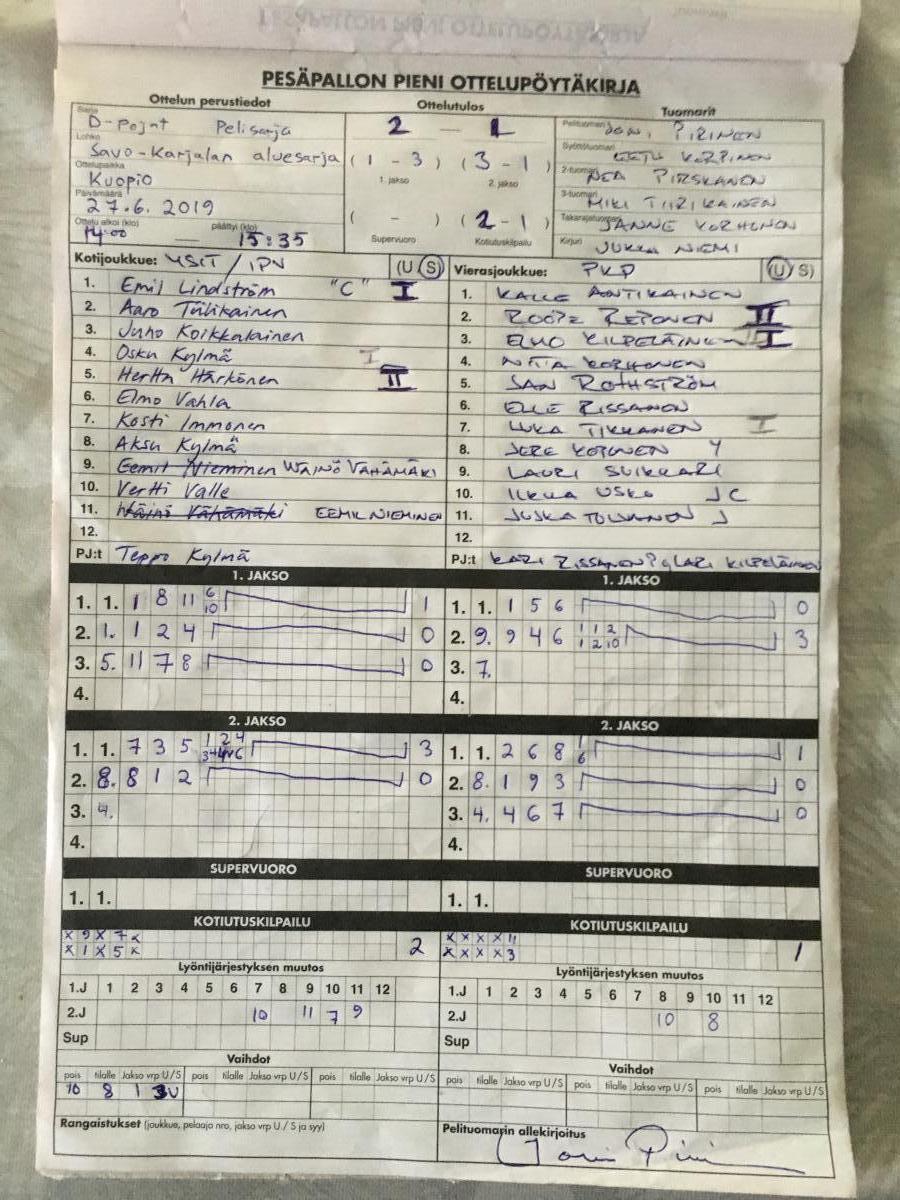 PESÄPALLON PIENI OTTELUPÖYTÄKIRJA
Ottelun perustiedot Ottelutulos Tuomarit
Sarja D-pojat Pelisarja 2 - 1 Pelituomari PIRINEN
Lohko Savo-Karjalan aluesarja (1-3) (3-1) Syöttötuomari EETU KORPINEN
1. jakso 2. jakso
Ottelupaikka Kuopio 2-tuomari NEA PIRSKANEN
Päivämäärä 27.6. 2019 3-tuomari MIKI TIIRIKAINEN
( - ) (2-1) Takarajatuomari JANNE KORHONEN
Ottelu alkoi (klo) 14:00 — päättyi (klo) 15:35 Supervuoro Kotiutuskilpailu Kirjuri JUKKA NIEMI
Kotijoukkue: YSIT / IPV (U S) Vierasjoukkue: PKP (U S)
1. Emil Lindström "C" I 1. KALLE ANTIKAINEN
2. Aaro Tiilikainen 2. ROOPE REPONEN II
3. Juho Koikkalainen 3. ELMO KILPELÄINEN I
4. Osku Kylmä I 4. KORHONEN
5. Hertta Härkönen II 5. SAN ROTHSTRÖM
6. Elmo Vahla 6. ELLE RISSANEN
7. Kosti Immonen 7. LUKA TIKKANEN I
8. Aksu Kylmä 8. JERE KORONEN Y
9. Eemil Nieminen WÄINÖ VÄHÄMÄKI 9. LAURI SUIKKARI
10. Vertti Valle 10. ILKKA USKO JC
11. Wäinö Vähämäki EEMIL NIEMINEN 11. JUSKA TOLVANEN J
12. 12.
PJ:t Teppo Kylmä PJ:t KARI RISSANEN LARI KILPELÄINEN
1. JAKSO 1. JAKSO
1. 1. 1 8 11 6 10 1 1. 1. 1 5 6 0
2. 1. 1 2 4 0 2. 9. 9 4 6 1 1 2 1 2 10 3
3. 5. 11 7 8 0 3. 7.
4. 4.
2. JAKSO 2. JAKSO
1. 1. 7 3 5 1 2 4 3 1. 1. 2 6 8 1 6 1
2. 8. 8 1 2 0 2. 8. 1 9 3 0
3. 4. 3. 4. 4 6 7 0
4. 4.
SUPERVUORO SUPERVUORO
1. 1. 1. 1.
KOTIUTUSKILPAILU KOTIUTUSKILPAILU
x 9 x 7 x x x x x 11
x 1 x 5 x 2 x x x x 3 1
Lyöntijärjestyksen muutos Lyöntijärjestyksen muutos
1.J 1 2 3 4 5 6 7 8 9 10 11 12 1.J 1 2 3 4 5 6 7 8 9 10 11 12
2.J 10 11 7 9 2.J 10 8
Sup Sup
Vaihdot Vaihdot
pois tilalle Jakso vrp U/S pois tilalle Jakso vrp U/S pois tilalle Jakso vrp U/S pois tilalle Jakso vrp U/S pois tilalle Jakso vrp U/S pois tilalle Jakso vrp U/S
10 8 1 3U
Rangaistukset (joukkue, pelaaja nro, jakso vrp U / S ja syy) Pelituomarin allekirjoitus